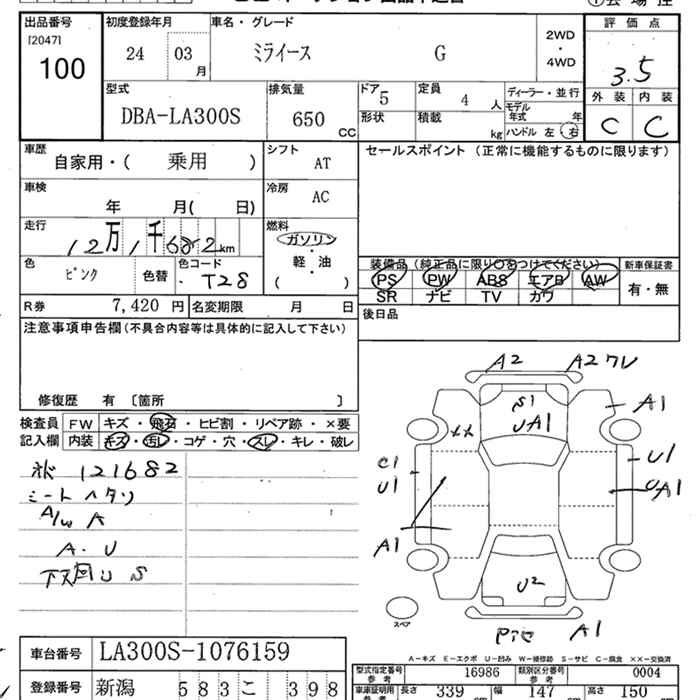 出品番号 初度登録年月 車名・グレード 2WD・4WD 評価点
[2047] 100
24 03月 ミライース G 3.5
型式 排気量 ドア 定員 ディーラー・並行 外装 内装
DBA-LA300S 650CC 5 4人 モデル年式 年
形状 積載 kg ハンドル 左 右 C C
車歴 シフト セールスポイント (正常に機能するものに限ります)
自家用・( 乗用 ) AT
車検 冷房
年 月( 日) AC
走行 燃料
12万1千682km ガソリン・軽・油
( )
色 色替 色コード 装備品 (純正品に限り○をつけてください) 新車保証書
ピンク T28 PS PW ABS エアB AW 有・無
SR ナビ TV カワ
R券 7,420円 名変期限 月 日 後日品
注意事項申告欄(不具合内容等は具体的に記入して下さい)
修復歴 有 〔箇所 〕
検査員 FW キズ・飛石・ヒビ割・リペア跡・×要
記入欄 内装 キズ・汚レ・コゲ・穴・スレ・キレ・破レ
121682
シートヘタリ
A/W A
A.U
下回り S
A2 A2ワレ
S1
UA1
A1
××
C1
U1
U1
UA1
A1
U2
スペア
A1
A-キズ E-エクボ U-凹ミ W-補修跡 S-サビ C-腐食 ××-交換済
車台番号 LA300S-1076159
型式指定番号 参考 16986 類別区分番号 参考 0004
登録番号 新潟 583 こ 398
車車証明用 参考 長さ 339cm 幅 147cm 高さ 150cm